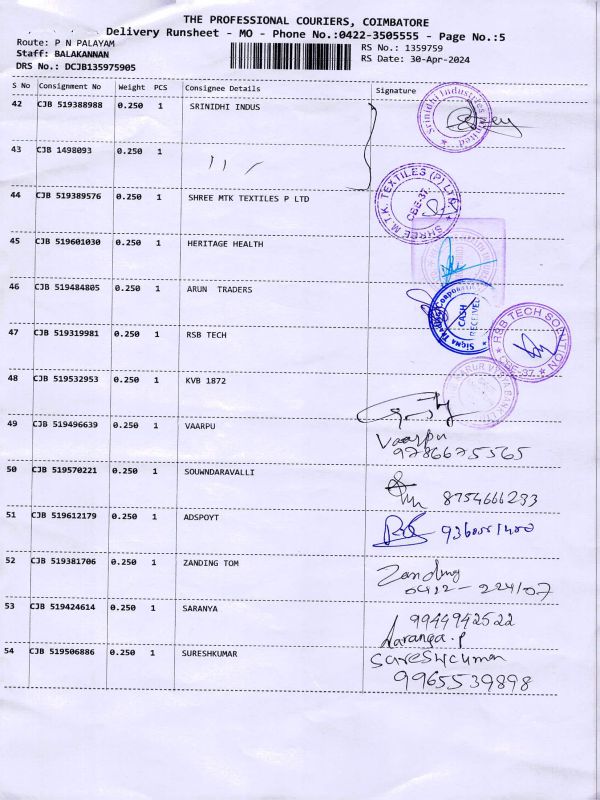 THE PROFESSIONAL COURIERS, COIMBATORE
Delivery Runsheet - MO - Phone No.:0422-3505555 - Page No.:5
Route: P N PALAYAM
Staff: BALAKANNAN
DRS No.: DCJB135975905
RS No.: 1359759
RS Date: 30-Apr-2024
S No Consignment No Weight PCS Consignee Details Signature
42 CJB 519388988 0.250 1 SRINIDHI INDUS
Srinidhi Industries Limited
43 CJB 1498093 0.250 1 ,, 
44 CJB 519389576 0.250 1 SHREE MTK TEXTILES P LTD
SHREE M.T.K. TEXTILES (P) LTD. CBE-37.
45 CJB 519601030 0.250 1 HERITAGE HEALTH
46 CJB 519484805 0.250 1 ARUN TRADERS
CASH RECEIVED
47 CJB 519319981 0.250 1 RSB TECH
RSB TECH SOLUTION CBE-37.
48 CJB 519532953 0.250 1 KVB 1872
49 CJB 519496639 0.250 1 VAARPU
Vaarpu
9786675565
50 CJB 519570221 0.250 1 SOUWNDARAVALLI
8754666233
51 CJB 519612179 0.250 1 ADSPOYT
52 CJB 519381706 0.250 1 ZANDING TOM
Zanding
0422-224107
53 CJB 519424614 0.250 1 SARANYA
9944942522
54 CJB 519506886 0.250 1 SURESHKUMAR
Sureshkumar
9965539898